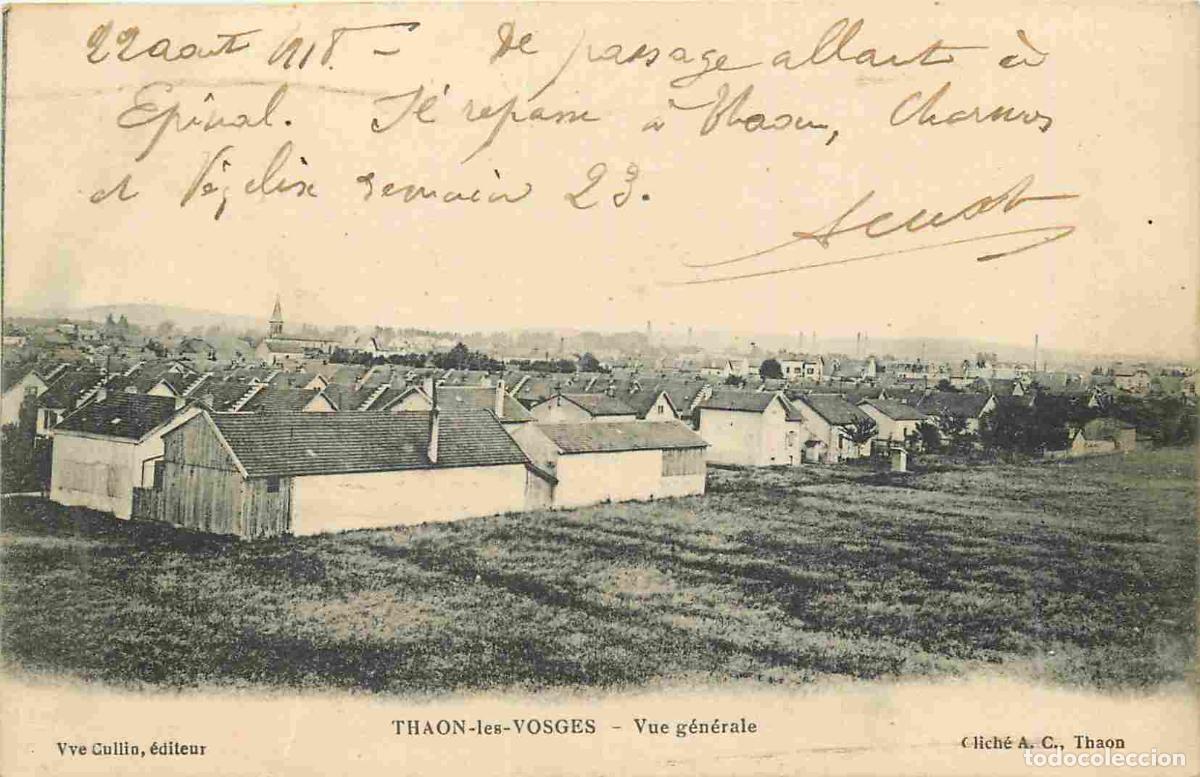 22 aout 1918. — De passage allant à
Epinal. Je repasse à Thaon, Charmes
et Vézelise demain 23.
THAON-les-VOSGES - Vue générale
Vve Cullin, éditeur
Cliché A. C., Thaon
todocoleccion